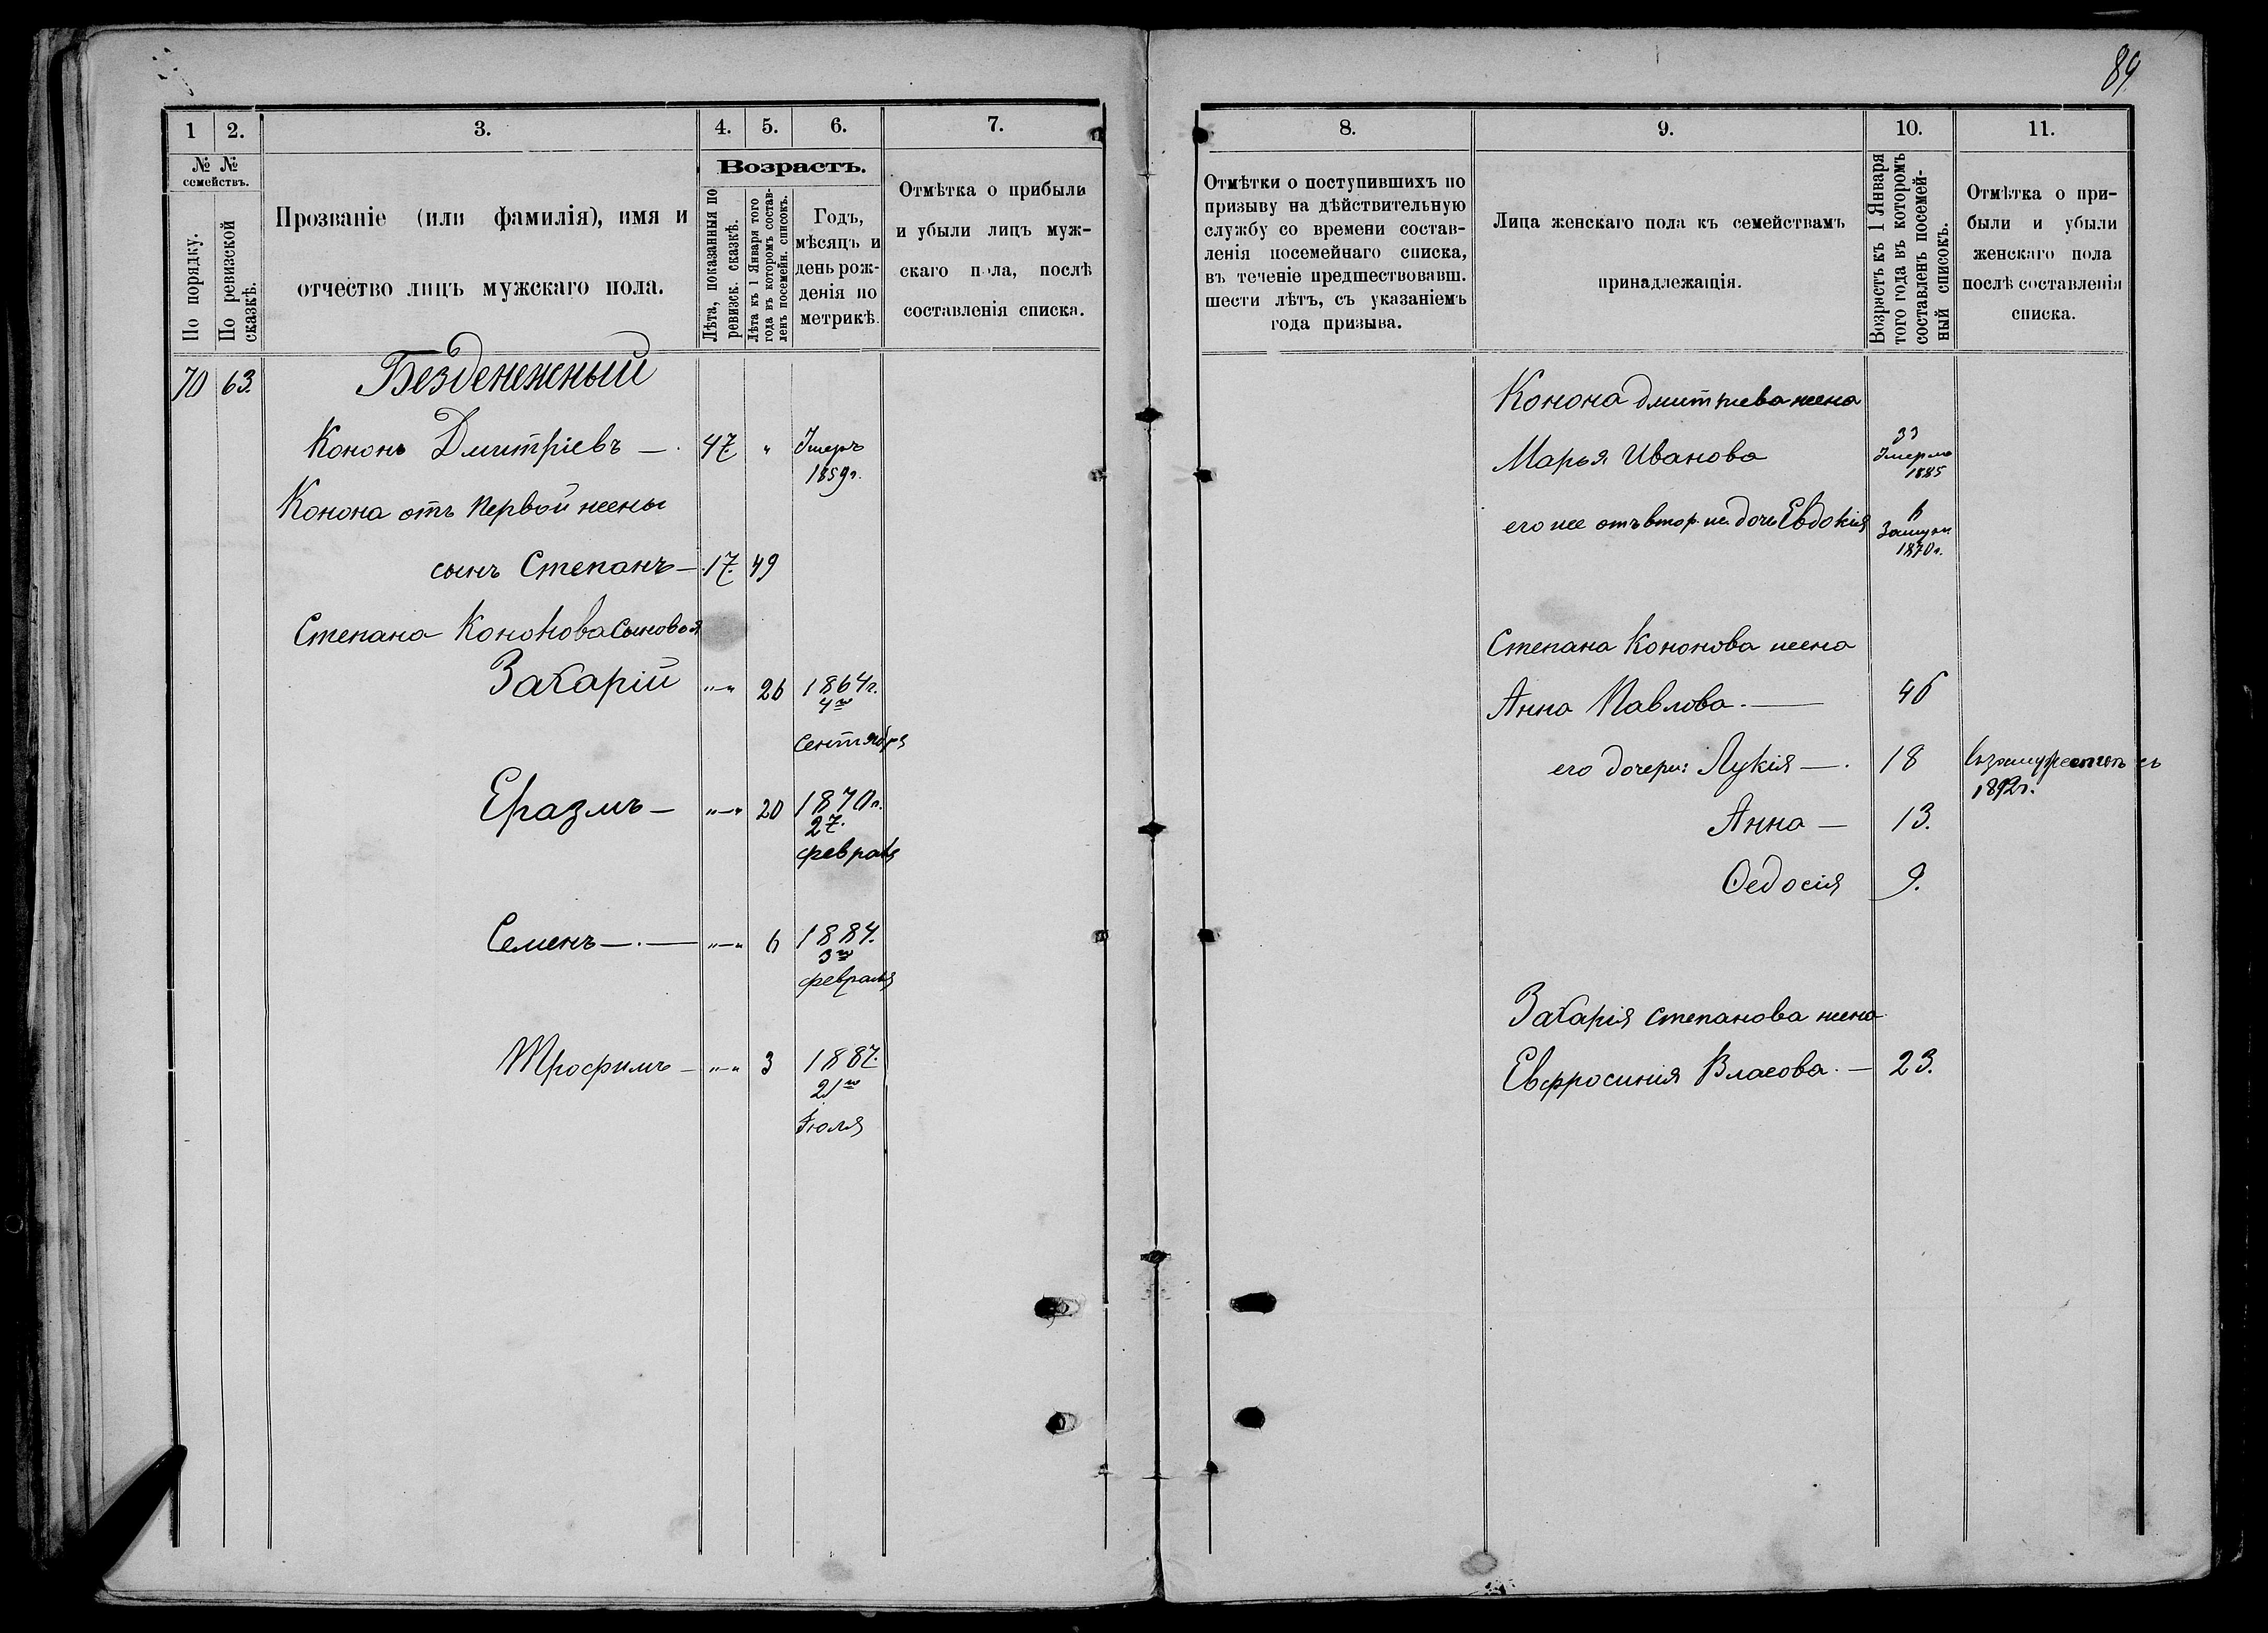 89
1
2.
3.
4.
5.
6.
7.
№ №
семействъ.
По порядку.
По ревизской
сказкѣ.
Прозваніе (или фамилія), имя и
отчество лицъ мужскаго пола.
Возрастъ.
Лѣта, показанныя по
ревизск. сказкѣ.
Лѣта къ 1 Января того
года въ которомъ состав-
ленъ посемейн. списокъ.
Годъ,
мѣсяцъ и
день рож-
денія по
метрикѣ.
Отмѣтка о прибыли
и убыли лицъ муж-
скаго пола, послѣ
составленія списка.
70 63. Безденежный
Кононъ Дмитріевъ — 47. " Умеръ
1859г.
Конона отъ первой жены
сынъ Степанъ — 17. 49
Степана Кононова сыновья
Захарій "—" 26 1864г.
4го
сентября
Еразмъ — "—" 20 1870г.
27.
февраля
Семенъ — "—" 6 1884.
3го
февраля
Трофимъ — "—" 3 1887.
21го
Іюля
8.
9.
10.
11.
Отмѣтки о поступившихъ по
призыву на дѣйствительную
службу со времени состав-
ленія посемейнаго списка,
въ теченіе предшествовавш.
шести лѣтъ, съ указаніемъ
года призыва.
Лица женскаго пола къ семействамъ
принадлежащія.
Возрастъ къ 1 Января
того года въ которомъ
составленъ посемей-
ный списокъ.
Отмѣтка о при-
были и убыли
женскаго пола
послѣ составленія
списка.
Конона Дмитриева жена
33
Марья Иванова Умерла
1885
его же отъ втор. же. дочь Евдокія
Замуж.
1870г.
Степана Кононова жена
Анна Павлова. — 46
его дочери: Лукія — 18
1892г.
Анна — 13.
Ѳедосія 9.
Захарія Степанова жена
Евфросинія Власова. — 23.